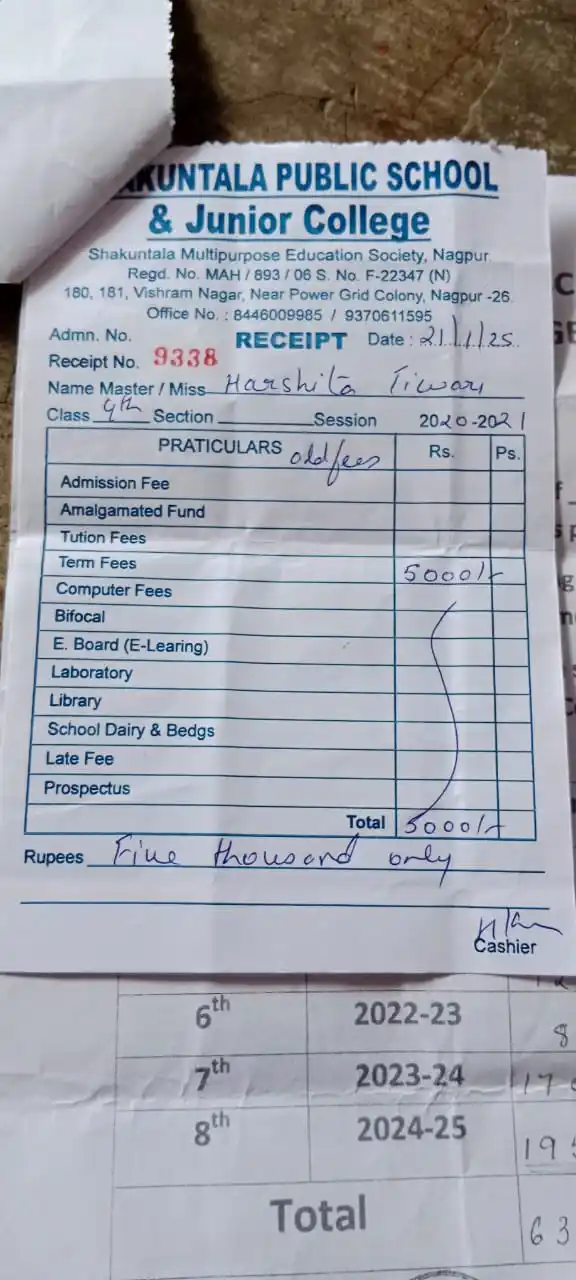 AKUNTALA PUBLIC SCHOOL
& Junior College
Shakuntala Multipurpose Education Society, Nagpur
Regd. No. MAH / 893 / 06 S. No. F-22347 (N)
180, 181, Vishram Nagar, Near Power Grid Colony, Nagpur -26.
Office No. : 8446009985 / 9370611595
Admn. No. RECEIPT Date : 21/1/25.
Receipt No. 9338
Name Master / Miss Harshita Tiwari
Class 4th Section Session 2020-2021
PRATICULARS old fees Rs. Ps.
Admission Fee
Amalgamated Fund
Tution Fees
Term Fees 5000/-
Computer Fees
Bifocal
E. Board (E-Learing)
Laboratory
Library
School Dairy & Bedgs
Late Fee
Prospectus
Total 5000/-
Rupees Five thousand only
Cashier
6th 2022-23 8
7th 2023-24 17
8th 2024-25 19
Total 63